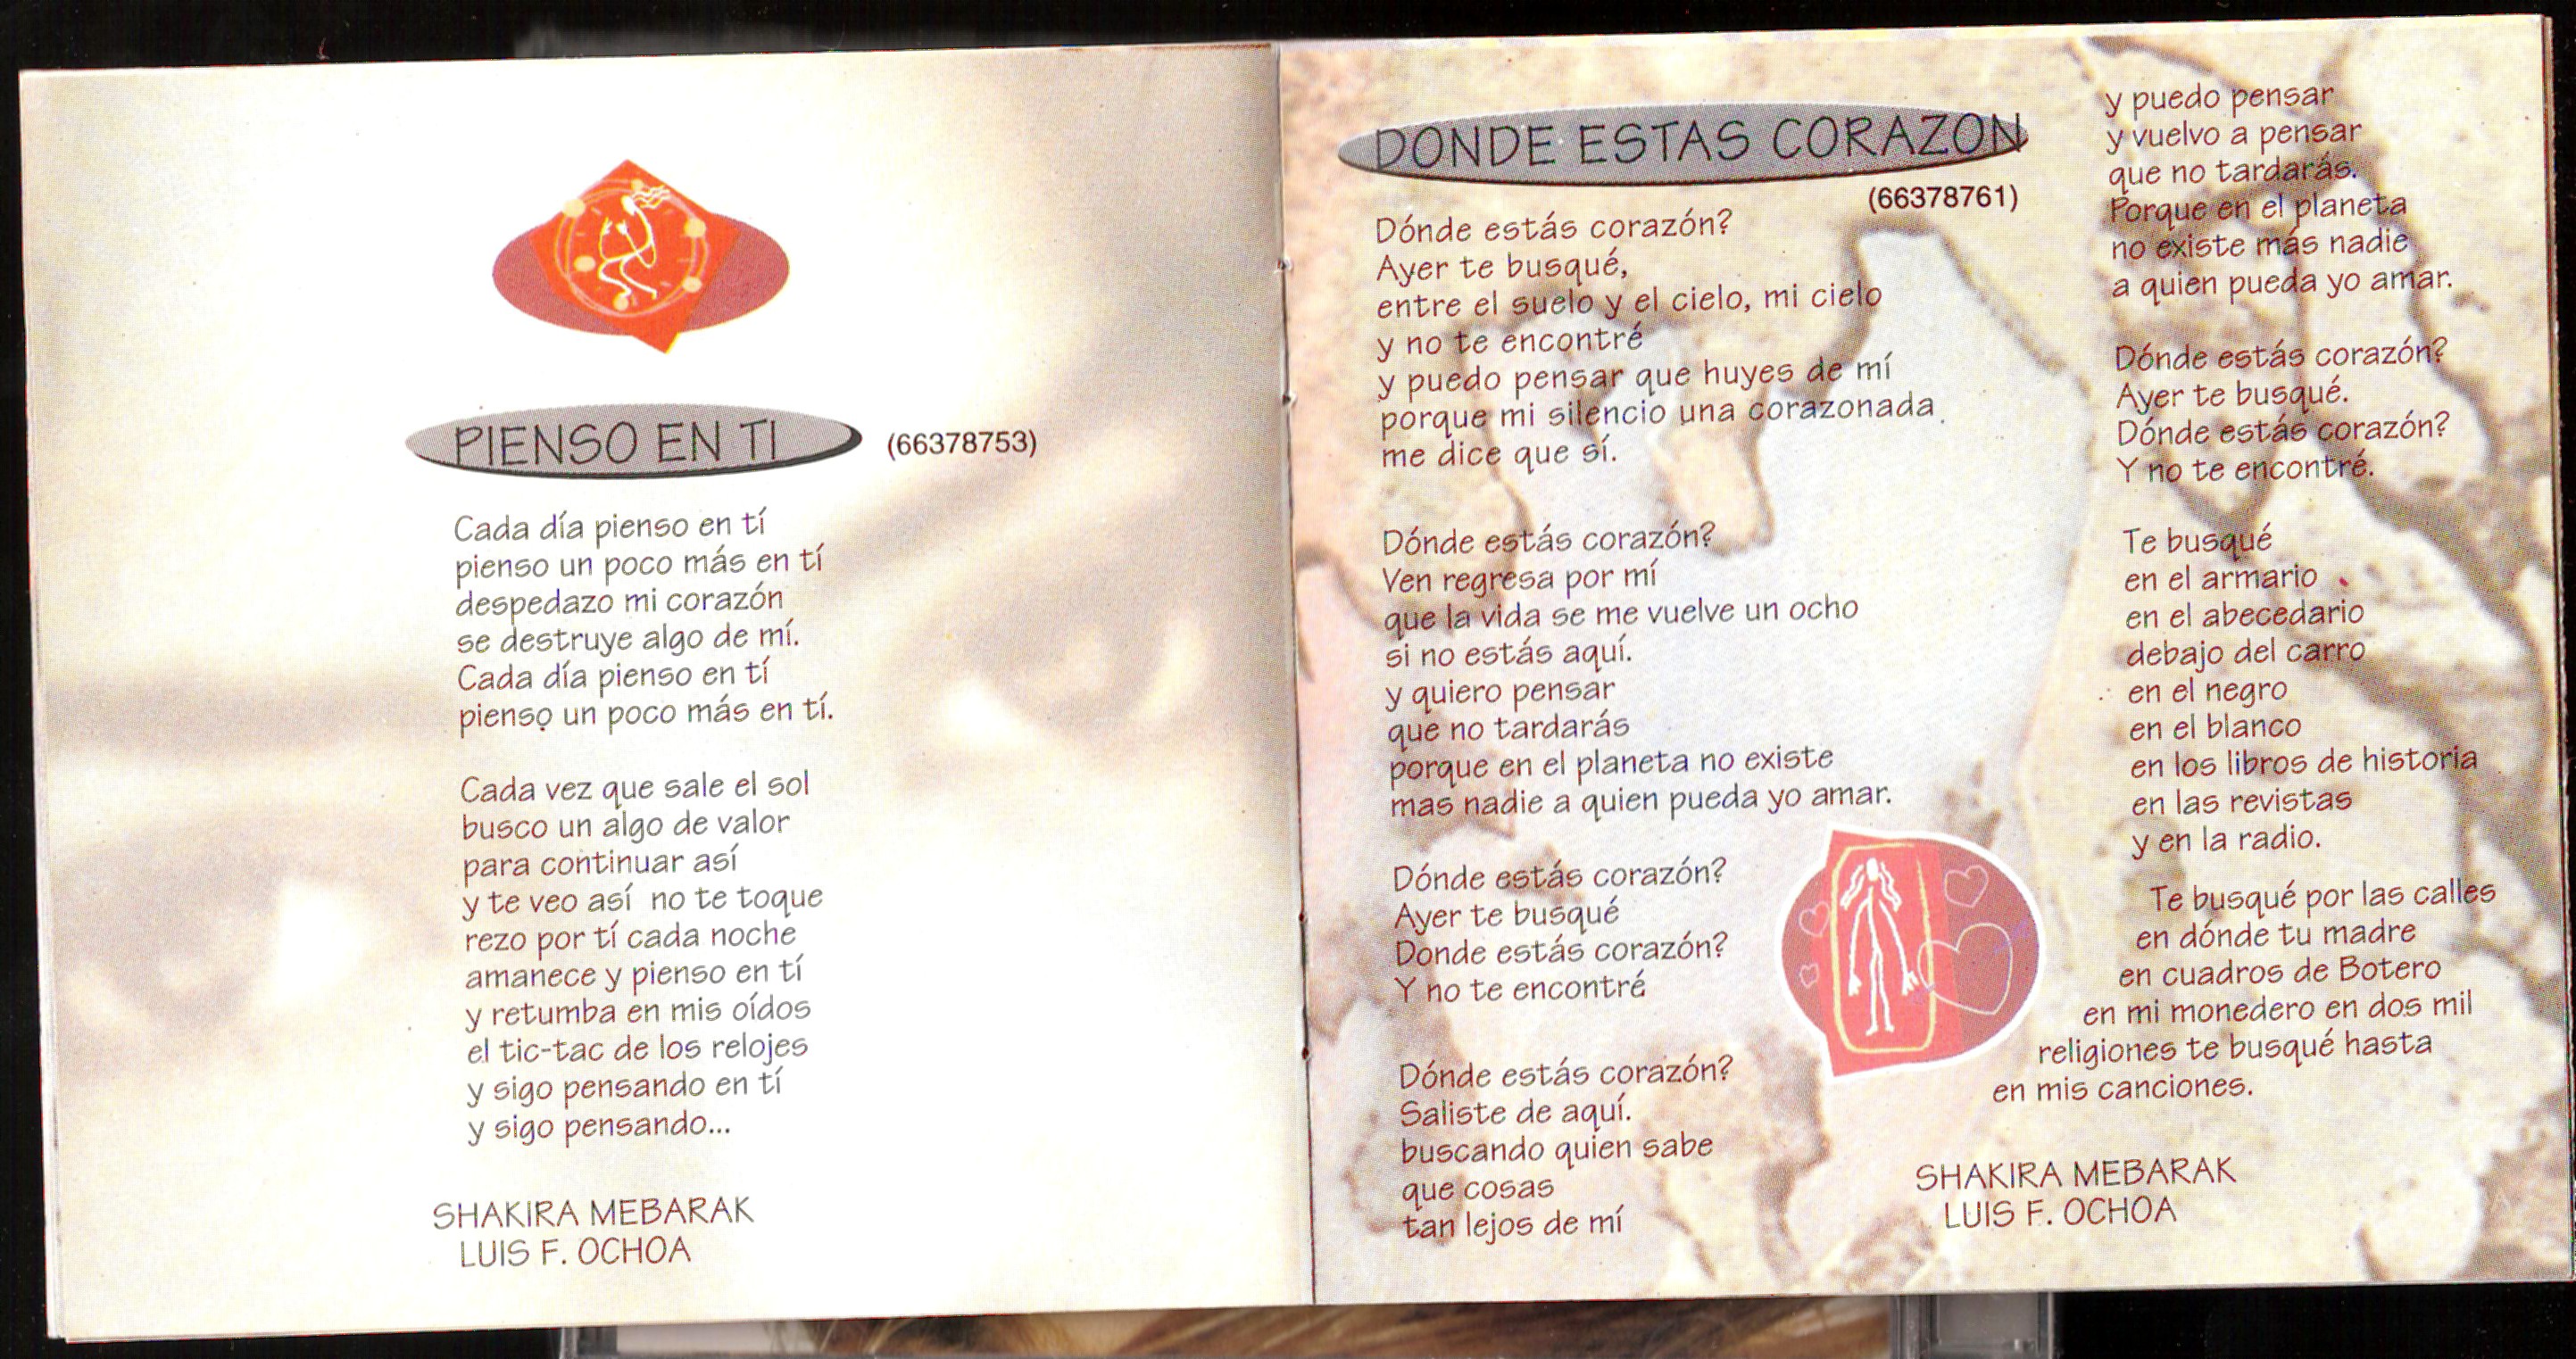 PIENSO EN TI
(66378753)
Cada día pienso en tí
pienso un poco más en tí
despedazo mi corazón
se destruye algo de mí.
Cada día pienso en tí
pienso un poco más en tí.
Cada vez que sale el sol
busco un algo de valor
para continuar así
y te veo así no te toque
rezo por tí cada noche
amanece y pienso en tí
y retumba en mis oídos
el tic-tac de los relojes
y sigo pensando en tí
y sigo pensando...
SHAKIRA MEBARAK
LUIS F. OCHOA
DONDE ESTAS CORAZON
(66378761)
Dónde estás corazón?
Ayer te busqué,
entre el suelo y el cielo, mi cielo
y no te encontré
y puedo pensar que huyes de mí
porque mi silencio una corazonada
me dice que sí.
Dónde estás corazón?
Ven regresa por mí
que la vida se me vuelve un ocho
si no estás aquí.
y quiero pensar
que no tardarás
porque en el planeta no existe
mas nadie a quien pueda yo amar.
Dónde estás corazón?
Ayer te busqué
Donde estás corazón?
Y no te encontré
Dónde estás corazón?
Saliste de aquí.
buscando quien sabe
que cosas
tan lejos de mí
y puedo pensar
y vuelvo a pensar
que no tardarás.
Porque en el planeta
no existe más nadie
a quien pueda yo amar.
Dónde estás corazón?
Ayer te busqué.
Dónde estás corazón?
Y no te encontré.
Te busqué
en el armario
en el abecedario
debajo del carro
en el negro
en el blanco
en los libros de historia
en las revistas
y en la radio.
Te busqué por las calles
en dónde tu madre
en cuadros de Botero
en mi monedero en dos mil
religiones te busqué hasta
en mis canciones.
SHAKIRA MEBARAK
LUIS F. OCHOA